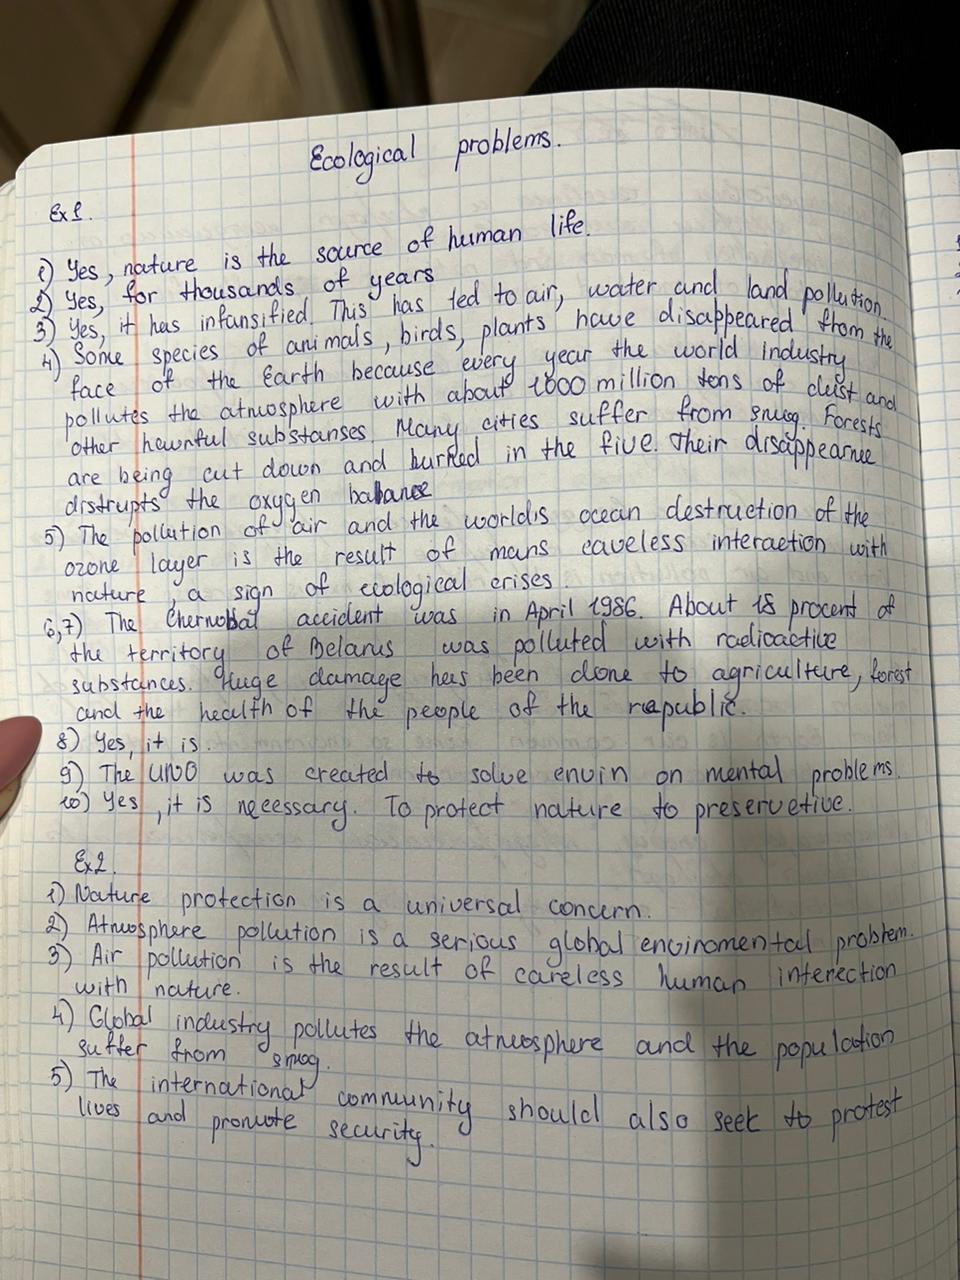 Ecological problems.
Ex 1.
1) Yes, nature is the source of human life.
2) Yes, for thousands of years
3) Yes, it has infansified. This has led to air, water and land pollution.
4) Some species of animals, birds, plants have disappeared from the
face of the Earth because every year the world industry
pollutes the atmosphere with about 1000 million tons of dust and
other hawnful substanses. Many cities suffer from smog. Forests
are being cut down and burned in the five. Their disappearnce
distrupts the oxygen balance
5) The pollution of air and the worldis ocean destruction of the
ozone layer is the result of mans caveless interaction with
nature, a sign of ecological crises.
6,7) The Chernobal accident was in April 1986. About 18 procent of
the territory of Belarus was polluted with radioactive
substances. Huge damage has been done to agriculture, forest
and the health of the people of the republic.
8) Yes, it is.
9) The UNO was created to solve envin on mental problems.
10) Yes, it is necessary. To protect nature to preservetive.
Ex2.
1) Nature protection is a universal concern.
2) Atmosphere pollution is a serious global enviromental problem.
3) Air pollution is the result of careless human interection
with nature.
4) Global industry pollutes the atmosphere and the population
suffer from smog.
5) The international community should also seek to protest
lives and promote security.